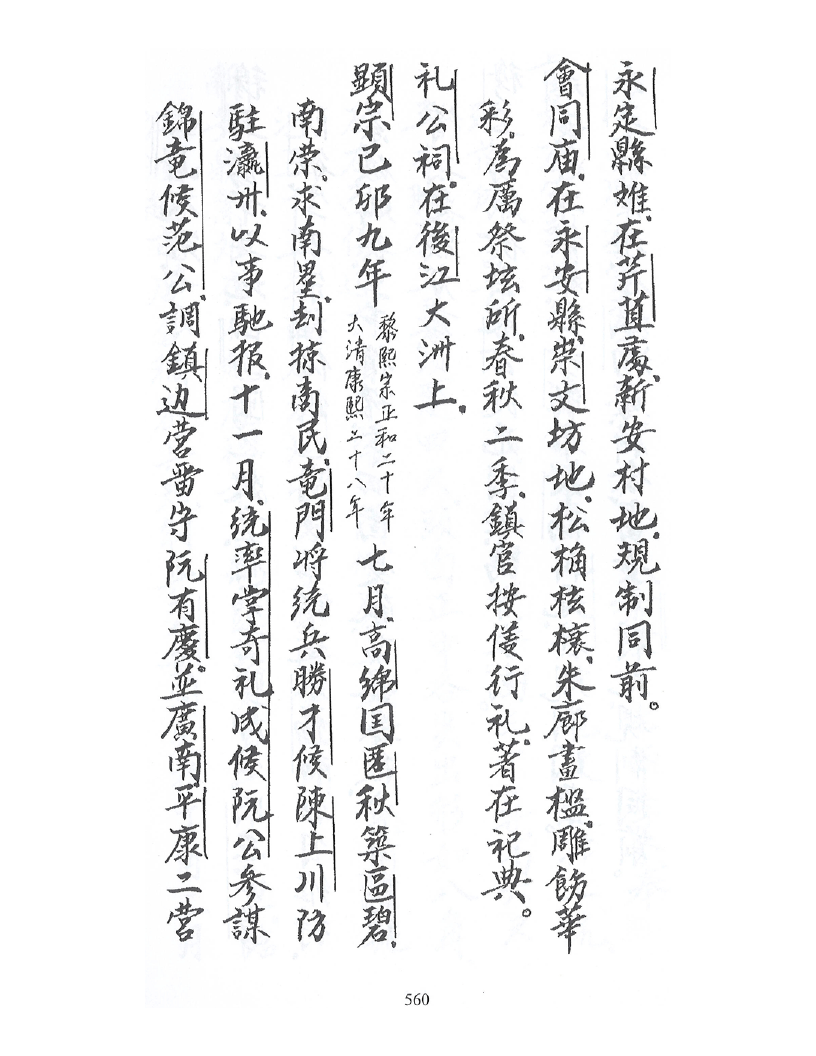 永定縣雄在芹苴處新安村地規制同前。
會同庙在永安縣崇文坊地松桷桉榱朱廊畫楹雕餙華
彩為厲祭坛所春秋二季鎮官按儀行礼著在祀典。
礼公祠在後江大洲上。
顕宗己夘九年
黎熙宗正和二十年
大清康熙三十八年
七月高綿国匿秋築區碧
南荣求南壘刦掠商民竜門将統兵勝才候陳上川防
駐瀛卅以事馳报十一月統率掌奇礼成候阮公參謀
錦竜候范公調鎮边营畱守阮有慶並廣南平康二营
560